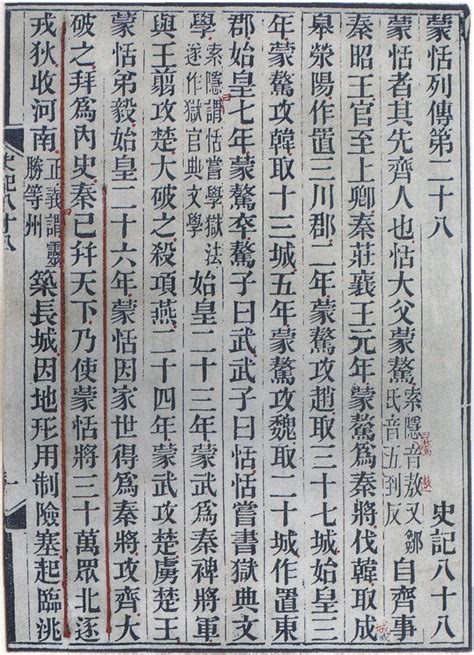 蒙恬列傳第二十八 史記八十八
蒙恬者其先齊人也恬大父蒙驁索隱音敖又鄒氏音五到反自齊事
秦昭王官至上卿秦莊襄王元年蒙驁爲秦將伐韓取成
皋滎陽作置三川郡二年蒙驁攻趙取三十七城始皇三
年蒙驁攻韓取十三城五年蒙驁攻魏取二十城作置東
郡始皇七年蒙驁卒驁子曰武武子曰恬恬嘗書獄典文
學索隱謂恬嘗學獄法遂作獄官典文學始皇二十三年蒙武爲秦裨將軍
與王翦攻楚大破之殺項燕二十四年蒙武攻楚虜楚王
蒙恬弟毅始皇二十六年蒙恬因家世得爲秦將攻齊大
破之拜爲內史秦已幷天下乃使蒙恬將三十萬眾北逐
戎狄收河南正義謂靈勝等州築長城因地形用制險塞起臨洮
史記八十八